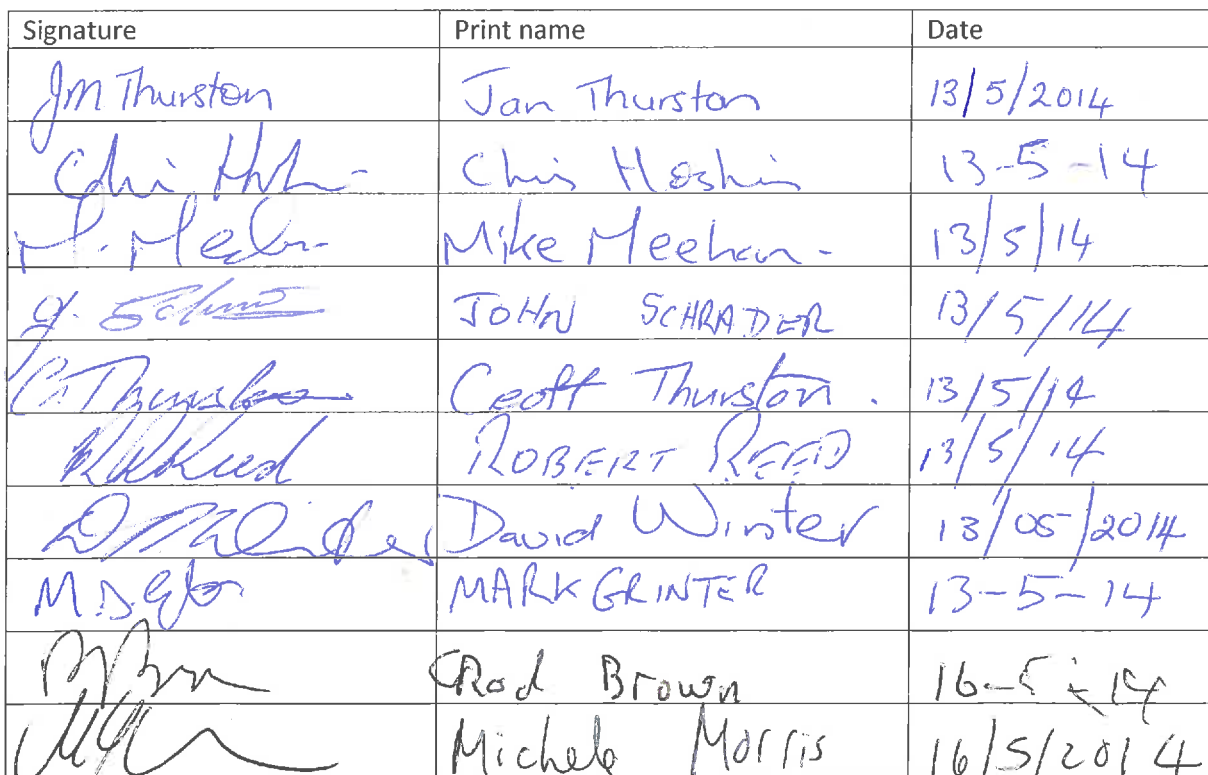 Signature Print name Date
JM Thurston Jan Thurston 13/5/2014
Chris Hoskin 13-5-14
M. Meehan Mike Meehan - 13/5/14
J. JOHN SCHRADER 13/5/14
G. Thurston Geoff Thurston . 13/5/14
ROBERT REED 13/5/14
David Winter 13/05/2014
M.D. MARK GRINTER 13-5-14
Rod Brown 16-5-14
Michele Morris 16/5/2014